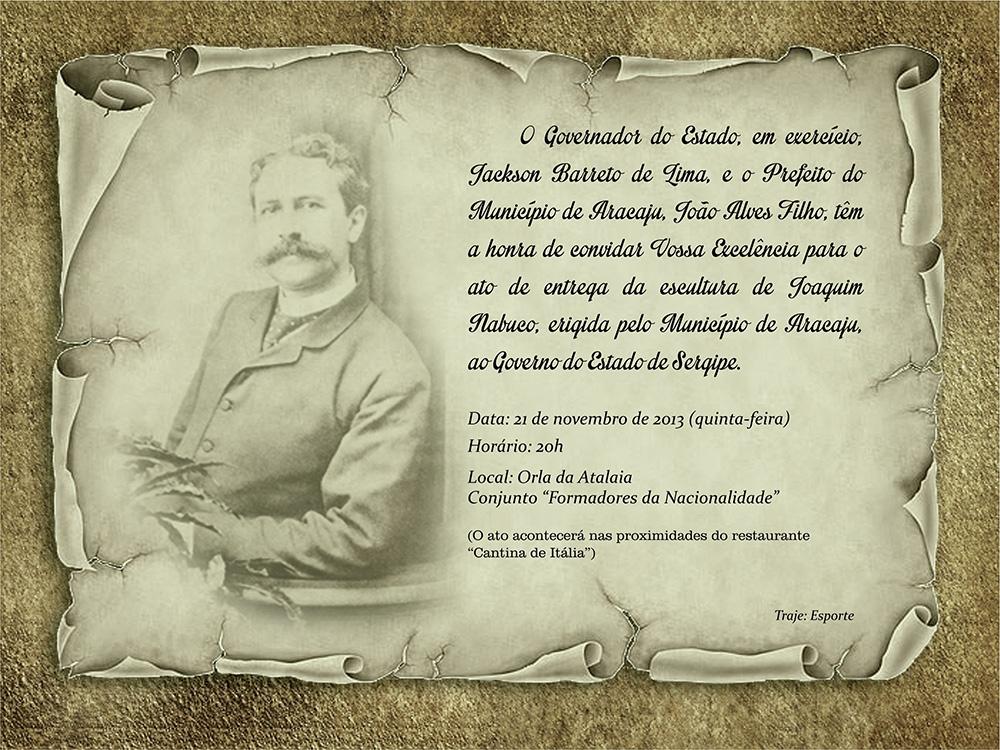 O Governador do Estado, em exercício,
Jackson Barreto de Lima, e o Prefeito do
Município de Aracaju, João Alves Filho, têm
a honra de convidar Vossa Excelência para o
ato de entrega da escultura de Joaquim
Nabuco, erigida pelo Município de Aracaju,
ao Governo do Estado de Sergipe.
Data: 21 de novembro de 2013 (quinta-feira)
Horário: 20h
Local: Orla da Atalaia
Conjunto “Formadores da Nacionalidade”
(O ato acontecerá nas proximidades do restaurante
“Cantina de Itália”)
Traje: Esporte